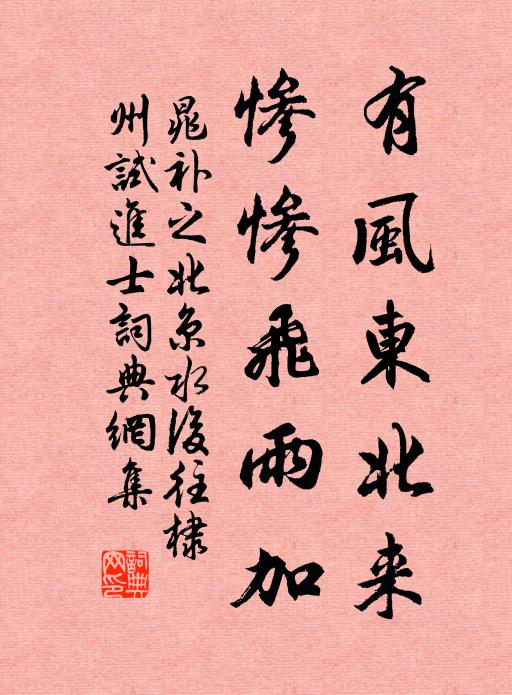 有風東北来
惨惨飛雨加
晁补之北京水後往棣
州試進士詞典網集
詞典
网印